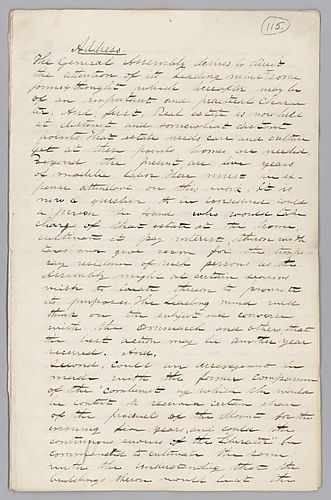 115.
Address.
The General Assembly desires to direct
the attention of its leading mind to some
points of thought which hereafter may be
of an important and practical charac-
ter. And first, Real estate is now held
at distinct and somewhat distant
points. That estate needs care and culture
yet at these points homes are needed.
Beyond the present are five years
of mobile labor. There must in ex-
pense attendant on this work. It is
now a question to be considered could
a person be found who would take
charge of that estate at the home
cultivate it pay interest, thereon with
taxes and give room for the tempo-
rary residence of such persons as the
Assembly might at certain seasons
wish to locate thereon to promote
its purposes. The leading mind will
think on the subject and converse
with the and others, that
the best action may be another year
secured. And,
Second, Could an arrangement be
made with the former companion
of the by which she would
be content to receive a certain share
of the products of the Mount for the
ensuing five years, and could the
continuous services of the be
commanded to cultivate the same
with the understanding that the
buildings thereon would be at the